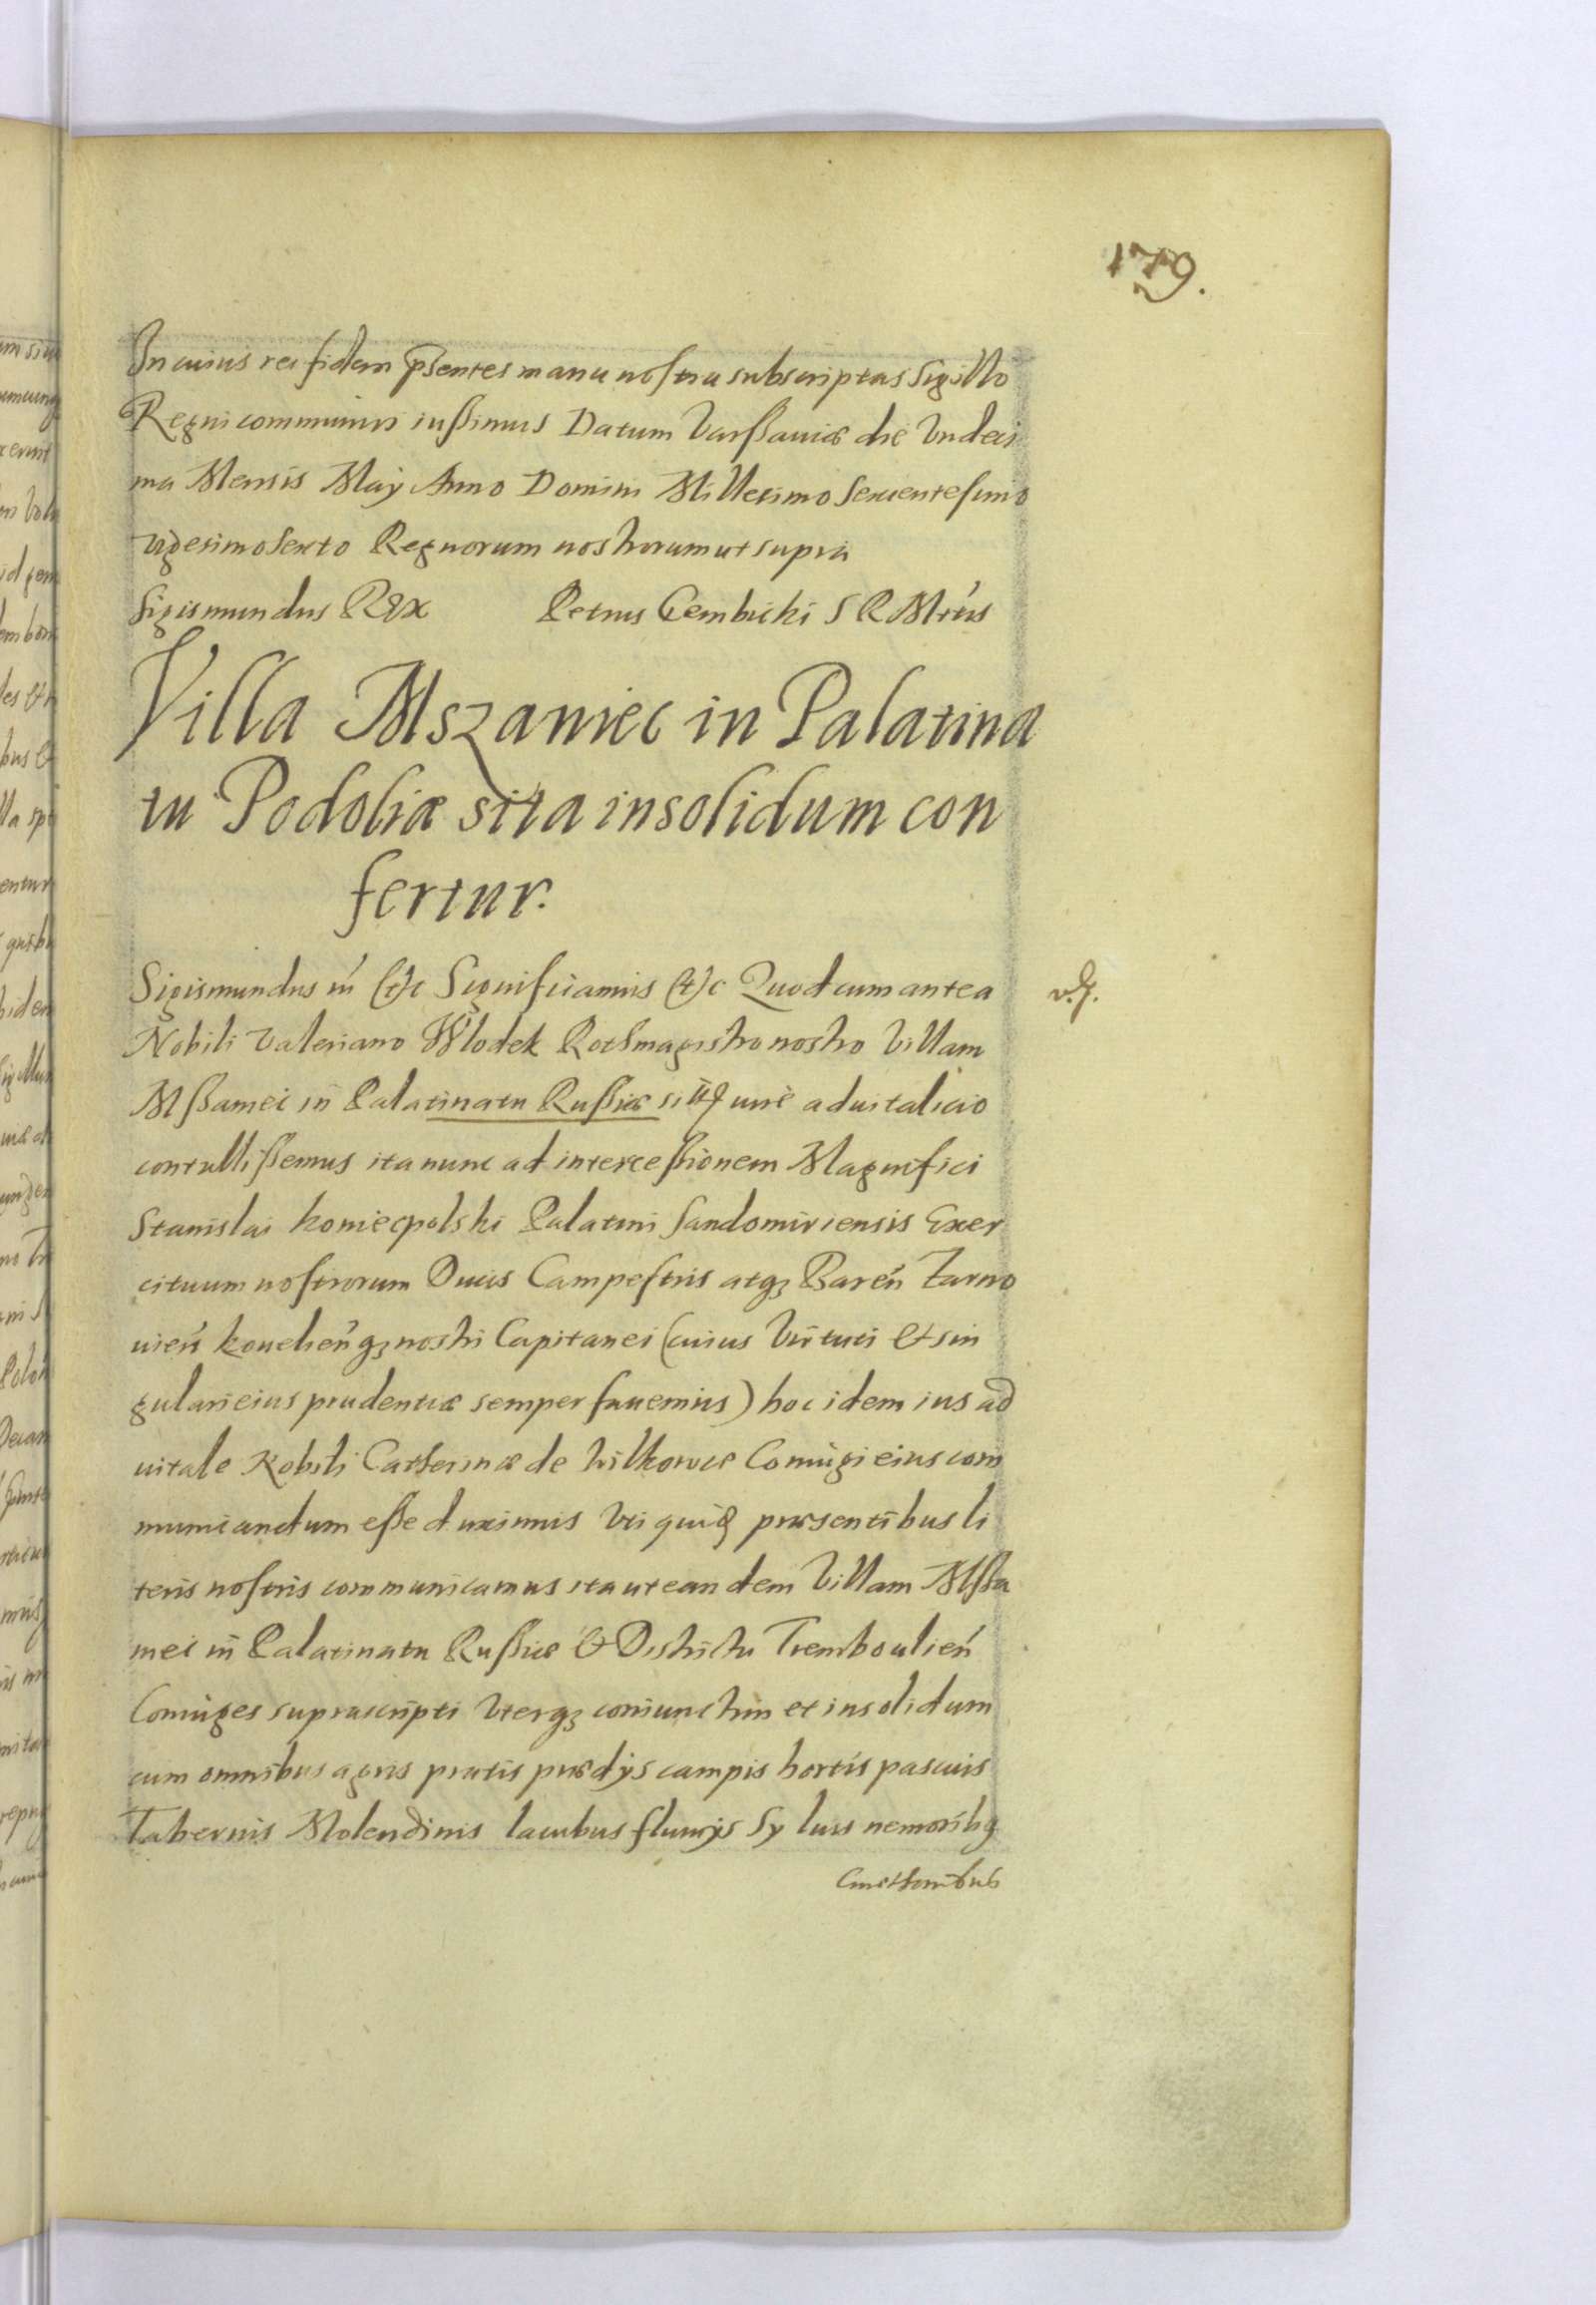 179.
In cuius rei fidem pſentes manu noſtra subscriptas Sigillo
Regni communiri iuſsimus Datum Varſsauiæ die Vndeci
ma Mensis Maÿ Anno Domini Millesimo Sexcentesimo
vigesimo Sexto Regnorum nostrorum ut supra
Sigismundus REx Petrus Gembicki S R Mtis
Villa Mszaniec in Palatina
tu Podoliæ sita insolidum con
fertur.
Sigismundus III (t)c Significamus (t)c Quod cum antea
v.g.
Nobili Valeriano Wlodek Rothmagistro nostro Villam
Mſsamei in Palatinatu Ruſsiæ iure aduitalicio
contulliſsemus ita nunc ad interceſsionem Magnifici
Stanislai Koniecpolski Palatini Sandomiriensis Exer
cituum noſtrorum Ducis Campeſtris atqꝫ Bareń Zarno
uień Kouelieńqꝫ nostri Capitanei (cuius Virtuti Et sin
gulari eius prudentiæ semper fauemus) hoc idem ius ad
uitale Nobili Catherinæ de Coniugi eius com
municandum eſse duximus Vti quidē præsentibus li
teris noſtris communicamus ita ut eandem Villam Mſsa
mei in Palatinatu Ruſsiæ Et Districtu Trembouлień
Coniuges suprascripti Vterqꝫ coniunctim et insolidum
cum omnibus agris pratis prædÿs campis hortis pascuis
Tabernis Molendinis lacubus fluuÿs Syluis nemoribꝗ
Cmethonibus